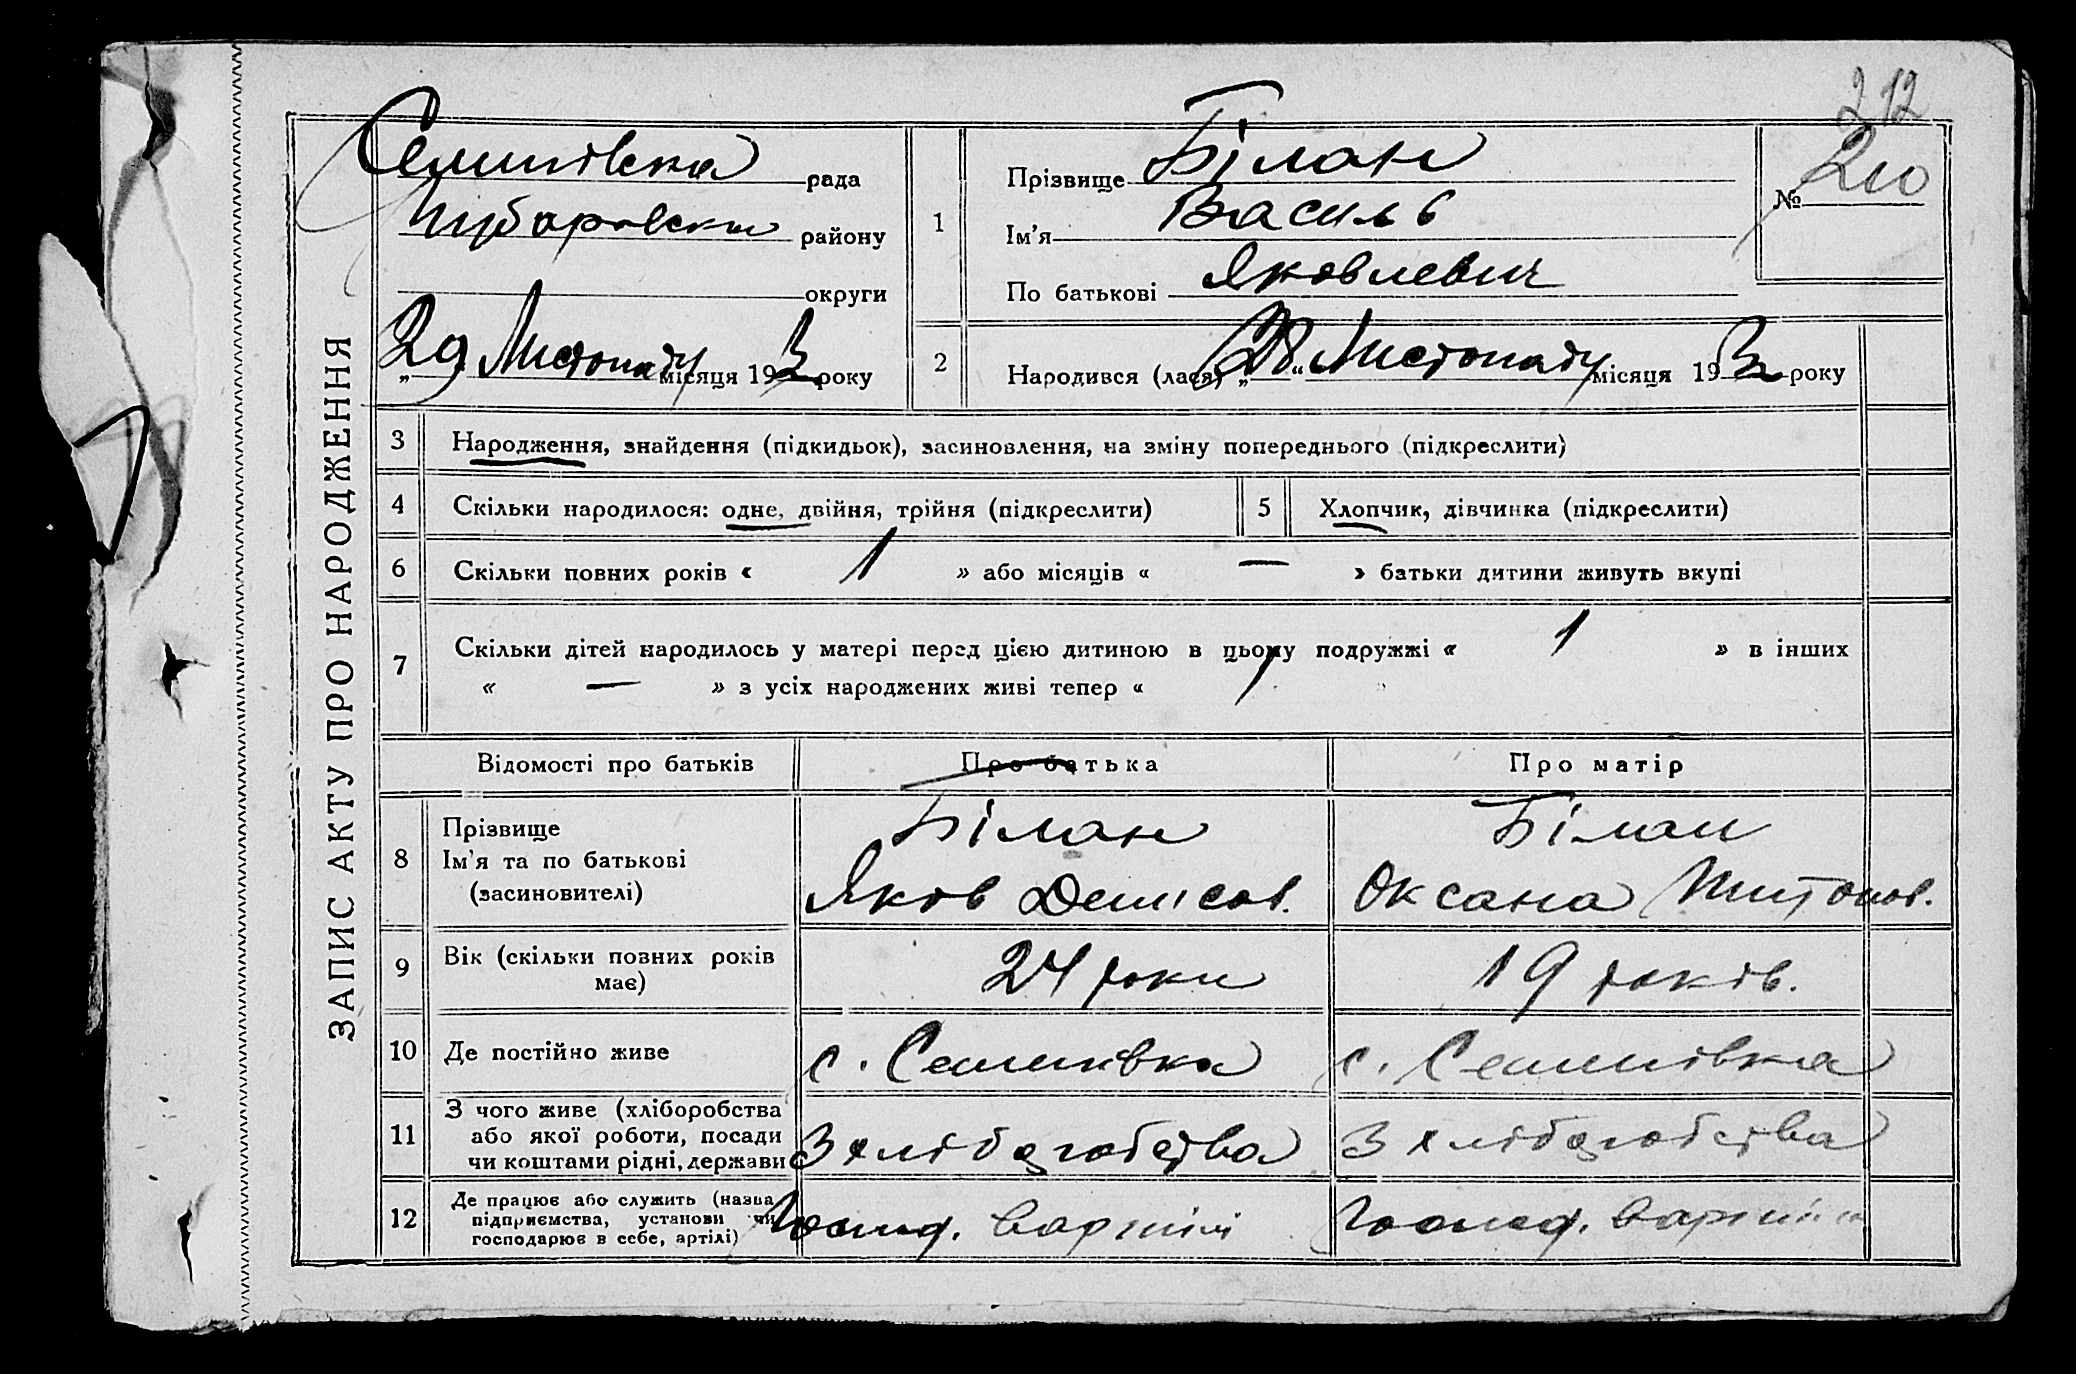 212
Семенівска рада
Чубаровски району
округи
29 Листопаду місяця 193 року
1
Прізвище Білан
Ім'я Василь
По батькові Яковлевич
№ 210
2
Народився (лася) „28“ Листопаду місяця 193 року
ЗАПИС АКТУ ПРО НАРОДЖЕННЯ
3 Народження, знайдення (підкидьок), засиновлення, на зміну попереднього (підкреслити)
4 Скільки народилося: одне, двійня, трійня (підкреслити) 5 Хлопчик, дівчинка (підкреслити)
6 Скільки повних років « 1 » або місяців « — » батьки дитини живуть вкупі
7 Скільки дітей народилось у матері перед цією дитиною в цьому подружжі « 1 » в інших
« — » з усіх народжених живі тепер « 1 »
Відомості про батьків Про батька Про матір
8
Прізвище
Ім'я та по батькові
(засиновителі)
Білан
Яков Денисов.
Білан
Оксана
9
Вік (скільки повних років
має)
24 роки
19 років.
10 Де постійно живе с. Семенівка с. Семенівка
11
З чого живе (хліборобства
або якої роботи, посади
чи коштами рідні, держави
З хлібороботва
З хлібороботва
12
Де працює або служить (назва
підприємства, установи чи
господарює в себе, артілі)
в артілі
в артілі